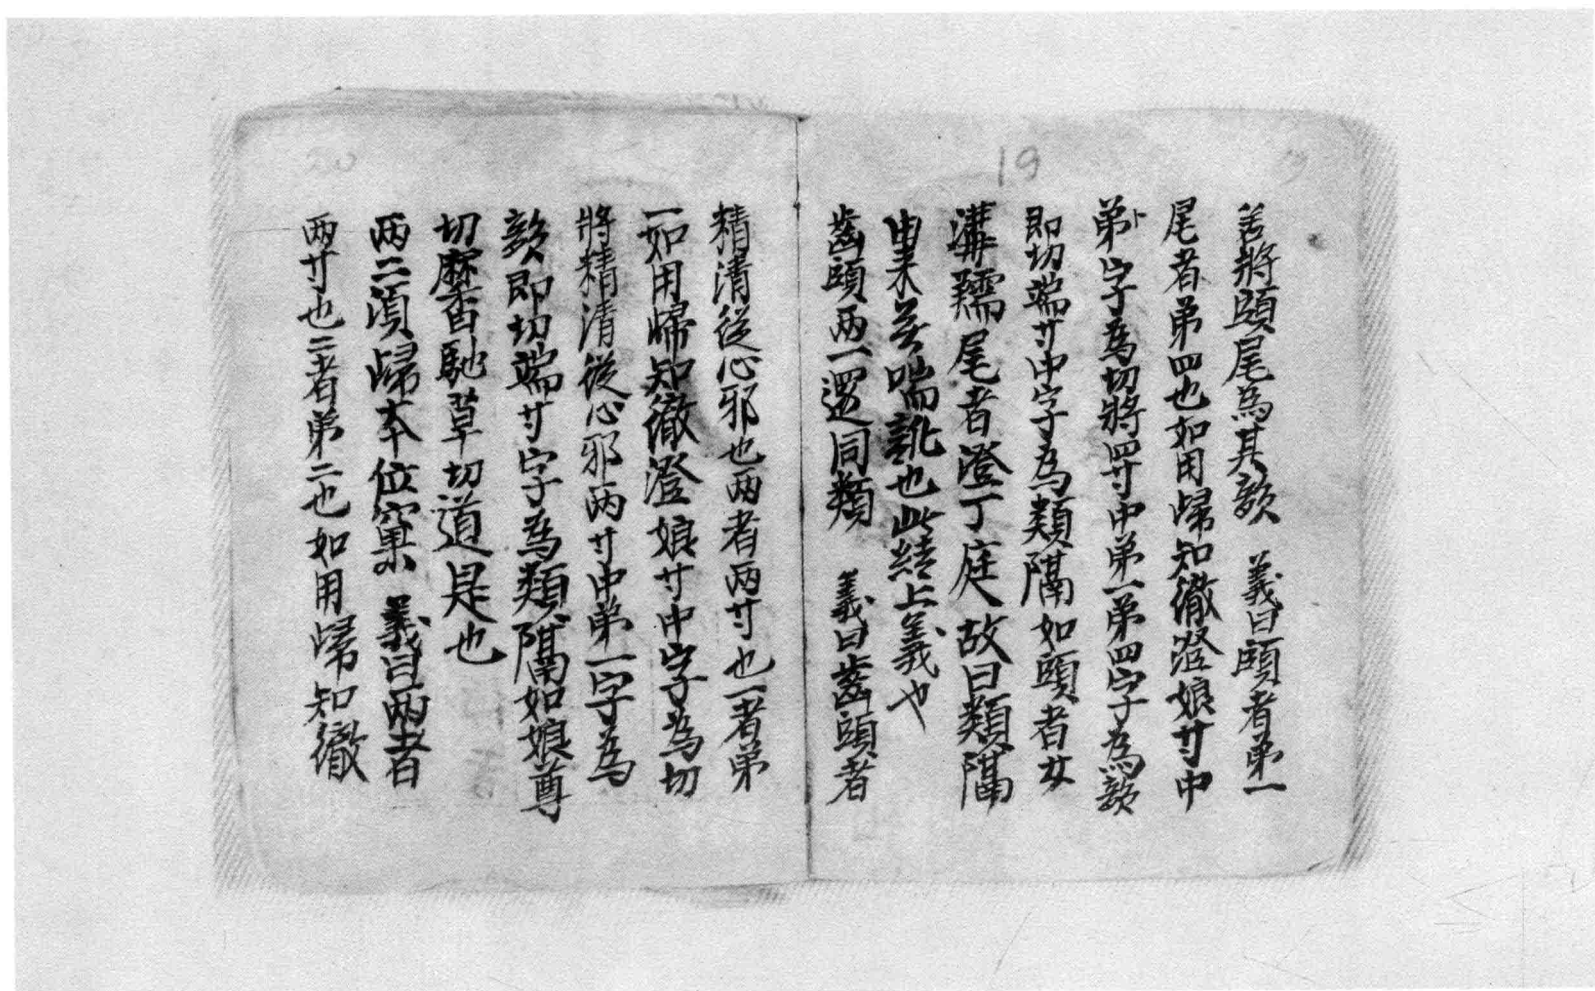 19
善將頭尾為其韻 義曰頭者弟一
尾者弟四也如用歸知徹澄娘寸中
弟卜字為切將四寸中弟一弟四字為韻
即切端寸中字為類隔如頭者女
溝羺尾者澄丁庭故曰類隔
由来無喘訛也此結上義也
齒頭兩一還同類 義曰齒頭者
20
精清從心邪也兩者兩寸也一者弟
一如用歸知徹澄娘寸中字為切
將精清從心邪兩寸中弟一字為
韻即切端寸字為類隔如娘尊
切黁馳草切道是也
兩二須歸本位窠 義曰兩者
兩寸也二者弟二也如用歸知徹